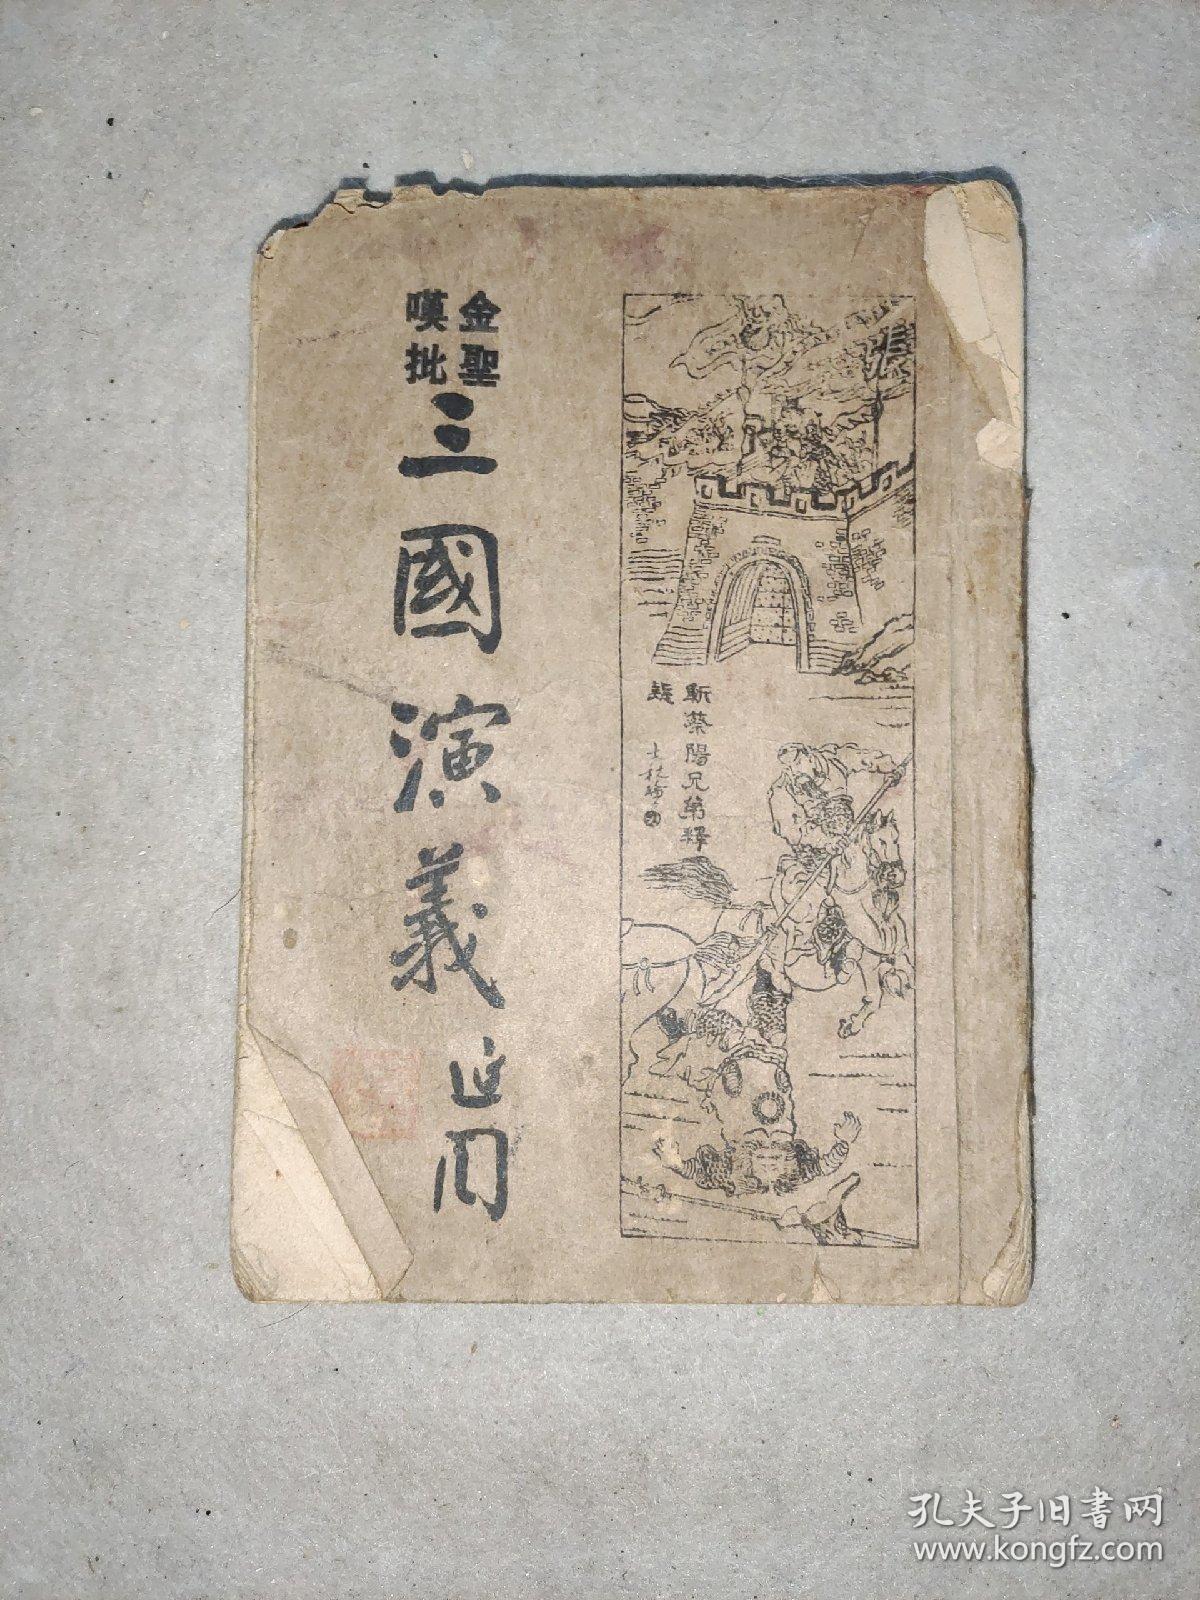 金聖
嘆批
三國演義
張
斬蔡陽兄弟釋
疑
孔夫子旧书网
www.kongfz.com